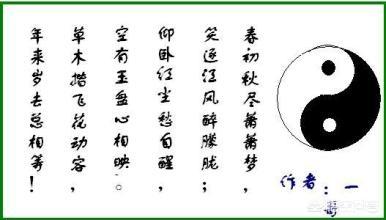 春初秋尽萧萧梦，
笑逐江风醉朦胧；
仰卧红尘愁自醒，
空有玉盘心相映。
草木揩飞花动容，
年来岁去总相筹！
作者：一